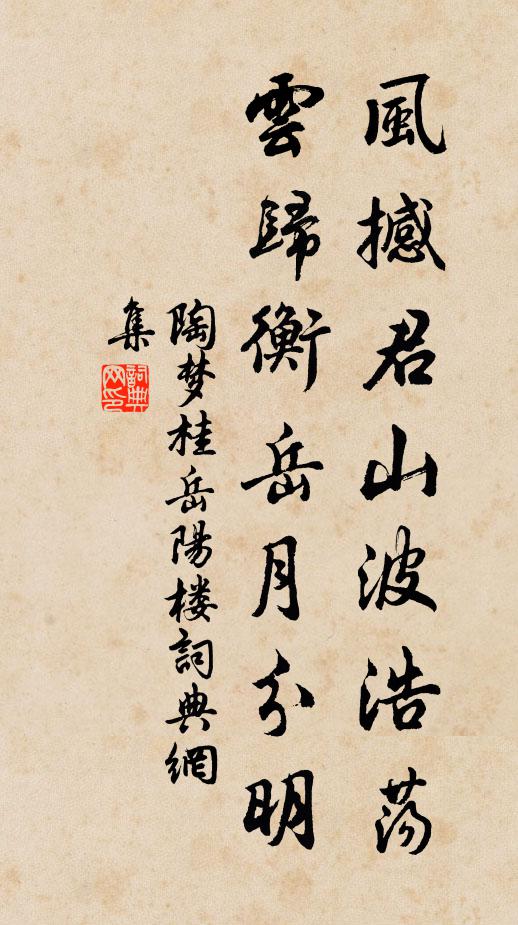 風撼君山波浩蕩
雲歸衡岳月分明
陶梦桂岳陽楼詞典網
集
詞典网印